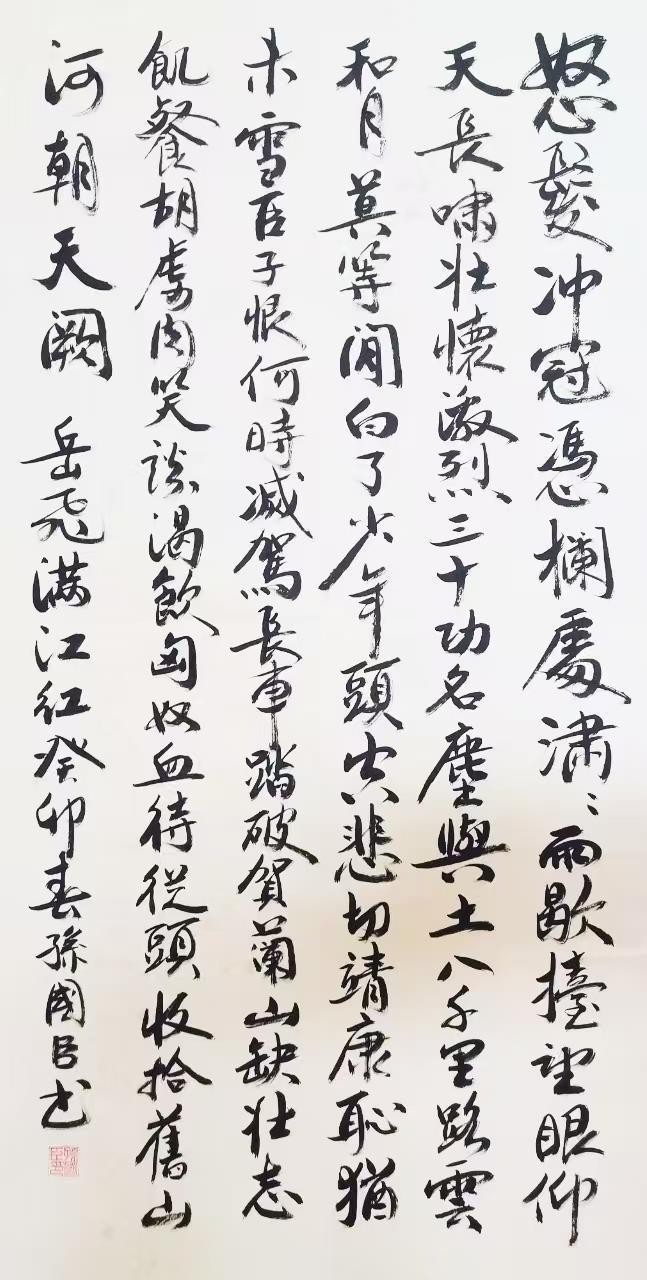 怒髮冲冠憑欄處潚〻雨歇擡望眼仰
天長嘯壯懷激烈三十功名塵與土八千里路雲
和月莫等閒白了少年頭空悲切靖康恥猶
未雪臣子恨何時滅駕長車踏破賀蘭山缺壯志
飢餐胡虜肉笑談渴飲匈奴血待從頭收拾舊山
河朝天闕 岳飛满江红癸卯春孫國臣书